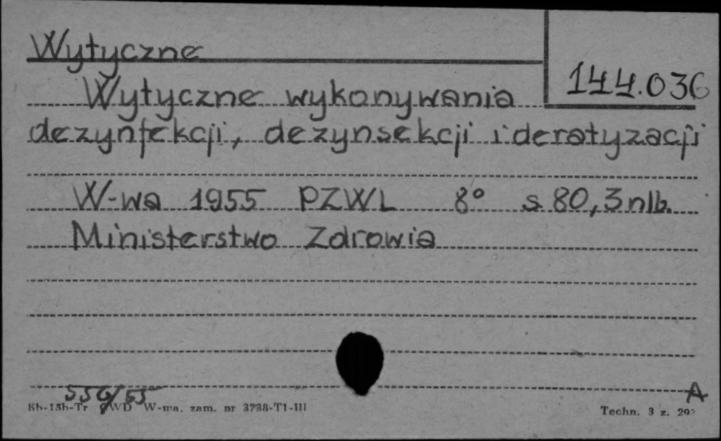 Wytyczne
144.036
Wytyczne wykonywania
dezynfekcji, dezynsekcji i deratyzacji
W-wa 1955 PZWL 8° s 80, 3 nlb.
Ministerstwo Zdrowia
550/55
A
Kh-15b-Tr PWD W-wa, zam. nr 3738-T1-III
Techn. 3 z.